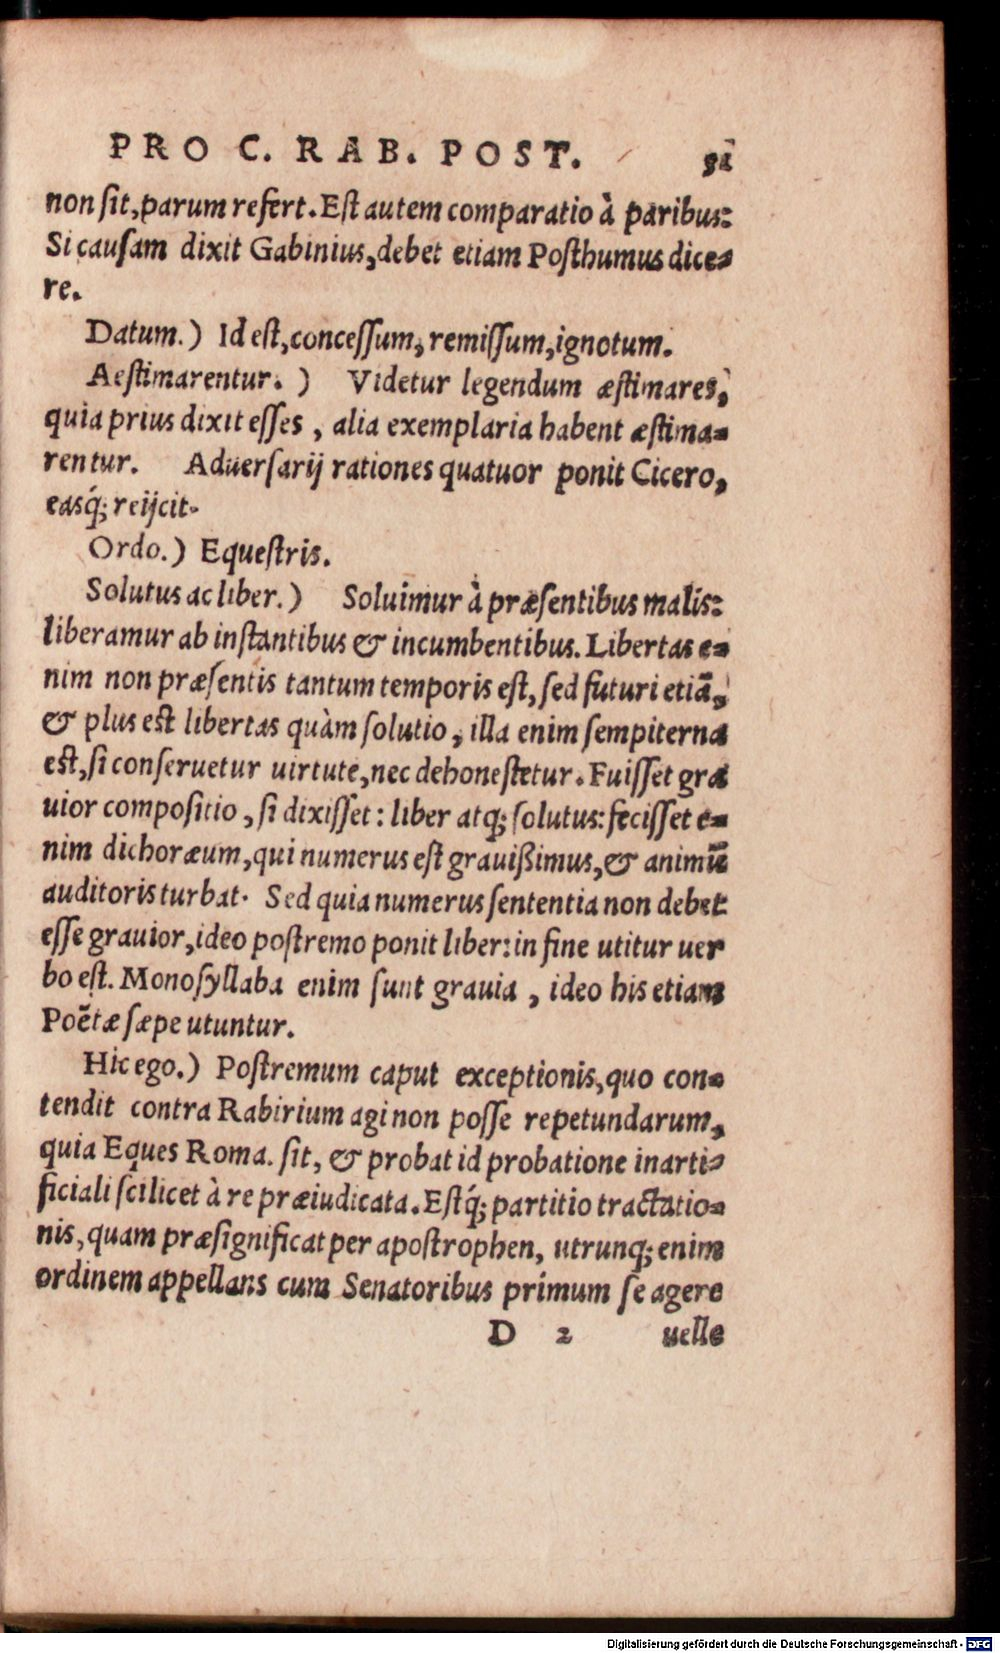 PRO C. RAB. POST.
non ſit, parum refert. Eſt autem comparatio à paribus:
Si cauſam dixit Gabinius, debet etiam Poſthumus dice-
re.
Datum.) Id eſt, conceſſum, remiſſum, ignotum.
Aeſtimarentur.) Videtur legendum æſtimares,
quia prius dixit eſſes, alia exemplaria habent æſtima-
rentur. Aduerſarij rationes quatuor ponit Cicero,
easq́; reijcit.
Ordo.) Equeſtris.
Solutus ac liber.) Soluimur à præſentibus malis:
liberamur ab inſtantibus & incumbentibus. Libertas e-
nim non præſentis tantum temporis eſt, ſed futuri etiã,
& plus eſt libertas quàm ſolutio, illa enim ſempiterna
eſt, ſi conſeruetur uirtute, nec dehoneſtetur. Fuiſſet gra
uior compoſitio, ſi dixiſſet: liber atq; ſolutus: feciſſet e-
nim dichoræum, qui numerus eſt grauißimus, & animũ
auditoris turbat. Sed quia numerus ſententia non debet
eſſe grauior, ideo poſtremo ponit liber: in fine utitur uer
bo eſt. Monoſyllaba enim ſunt grauia, ideo his etiam
Poëtæ ſæpe utuntur.
Hic ego.) Poſtremum caput exceptionis, quo con-
tendit contra Rabirium agi non poſſe repetundarum,
quia Eques Roma. ſit, & probat id probatione inarti-
ficiali ſcilicet à re præiudicata. Eſtq́; partitio tractatio-
nis, quam præſignificat per apoſtrophen, utrunq; enim
ordinem appellans cum Senatoribus primum ſe agere
D 2 uelle
Digitalisierung gefördert durch die Deutsche Forschungsgemeinschaft - DFG